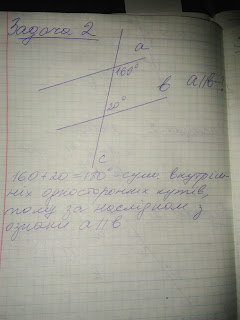 Задача 2
a
160°
в a||в-?
20°
c
160+20=180°=сума внутріш-
ніх односторонніх кутів,
тому за наслідком з
ознаки a||в